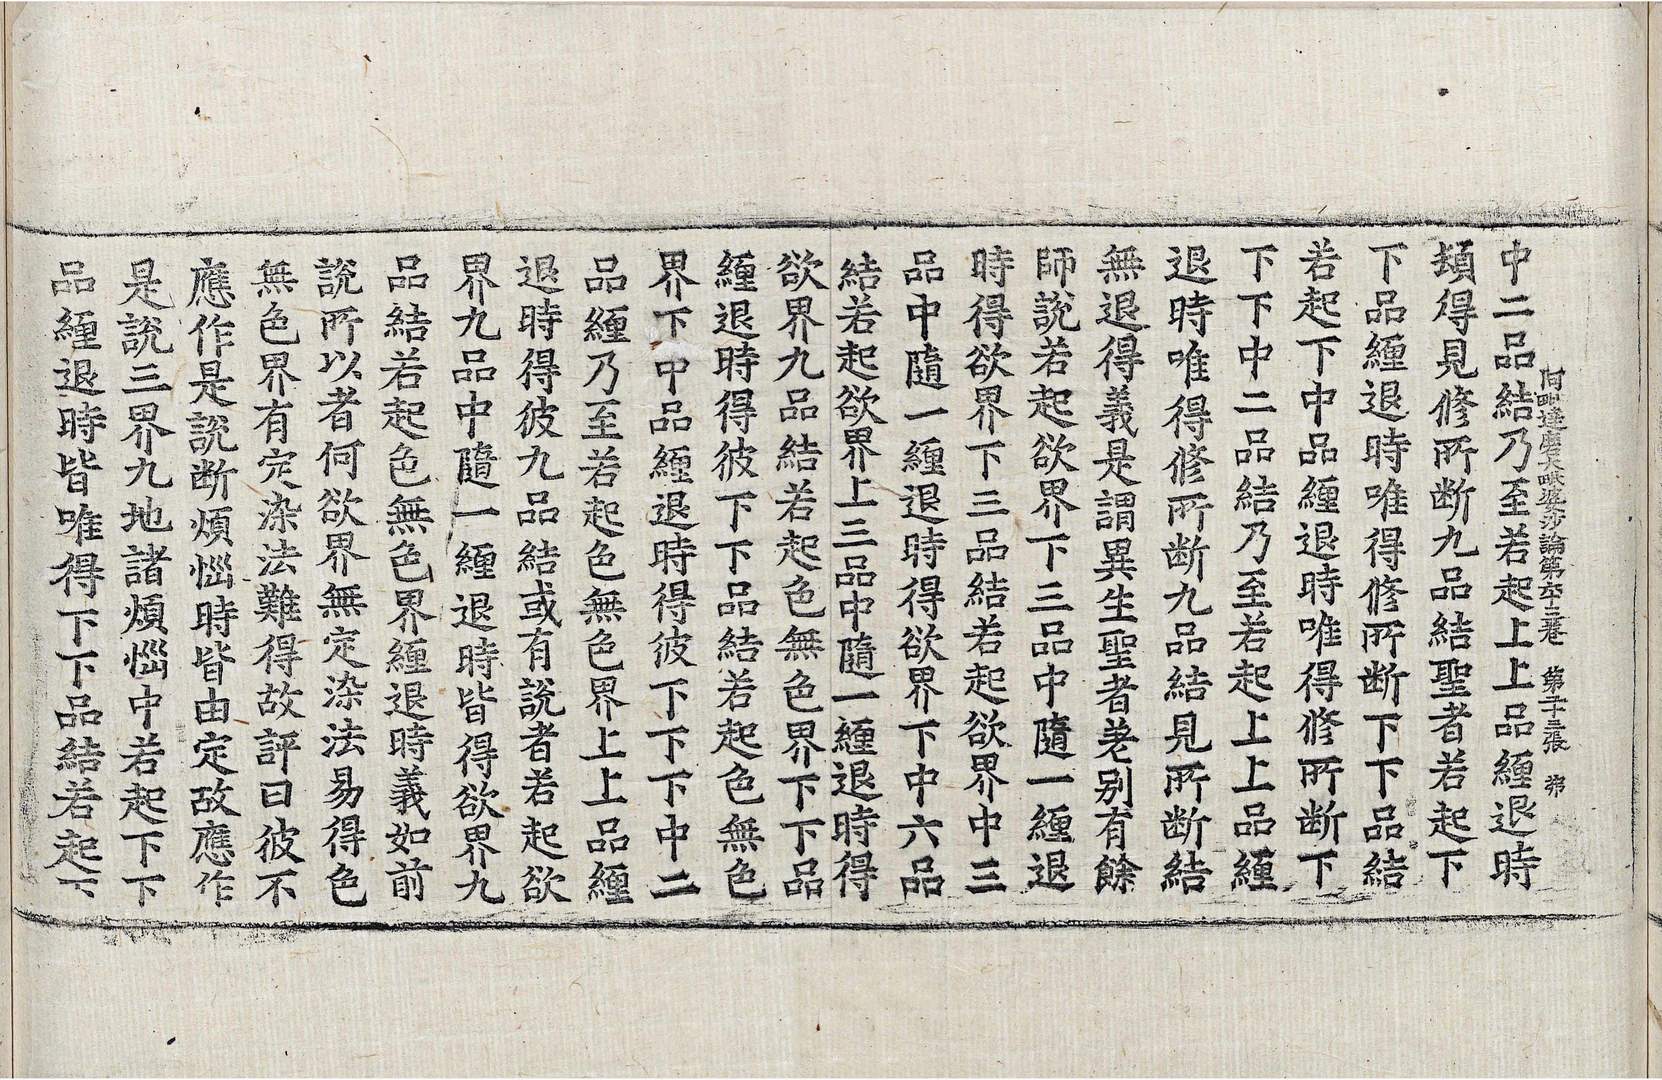 阿毗達磨大毗婆沙論第六十三卷 第二十三張 弗
中二品結乃至若起上上品纏退時
頓得見修所断九品結聖者若起下
下品纏退時唯得修所断下下品結
若起下中品纏退時唯得修所断下
下下中二品結乃至若起上上品纏
退時唯得修所断九品結見所断結
無退得義是謂異生聖者差别有餘
師說若起欲界下三品中隨一纏退
時得欲界下三品結若起欲界中三
品中隨一纏退時得欲界下中六品
結若起欲界上三品中隨一纏退時得
欲界九品結若起色無色界下下品
纏退時得彼下下品結若起色無色
界下中品纏退時得彼下下下中二
品纏乃至若起色無色界上上品纏
退時得彼九品結或有說者若起欲
界九品中隨一纏退時皆得欲界九
品結若起色無色界纏退時義如前
說所以者何欲界無定染法易得色
無色界有定染法難得故評曰彼不
應作是說断煩惱時皆由定故應作
是說三界九地諸煩惱中若起下下
品纏退時皆唯得下下品結若起下